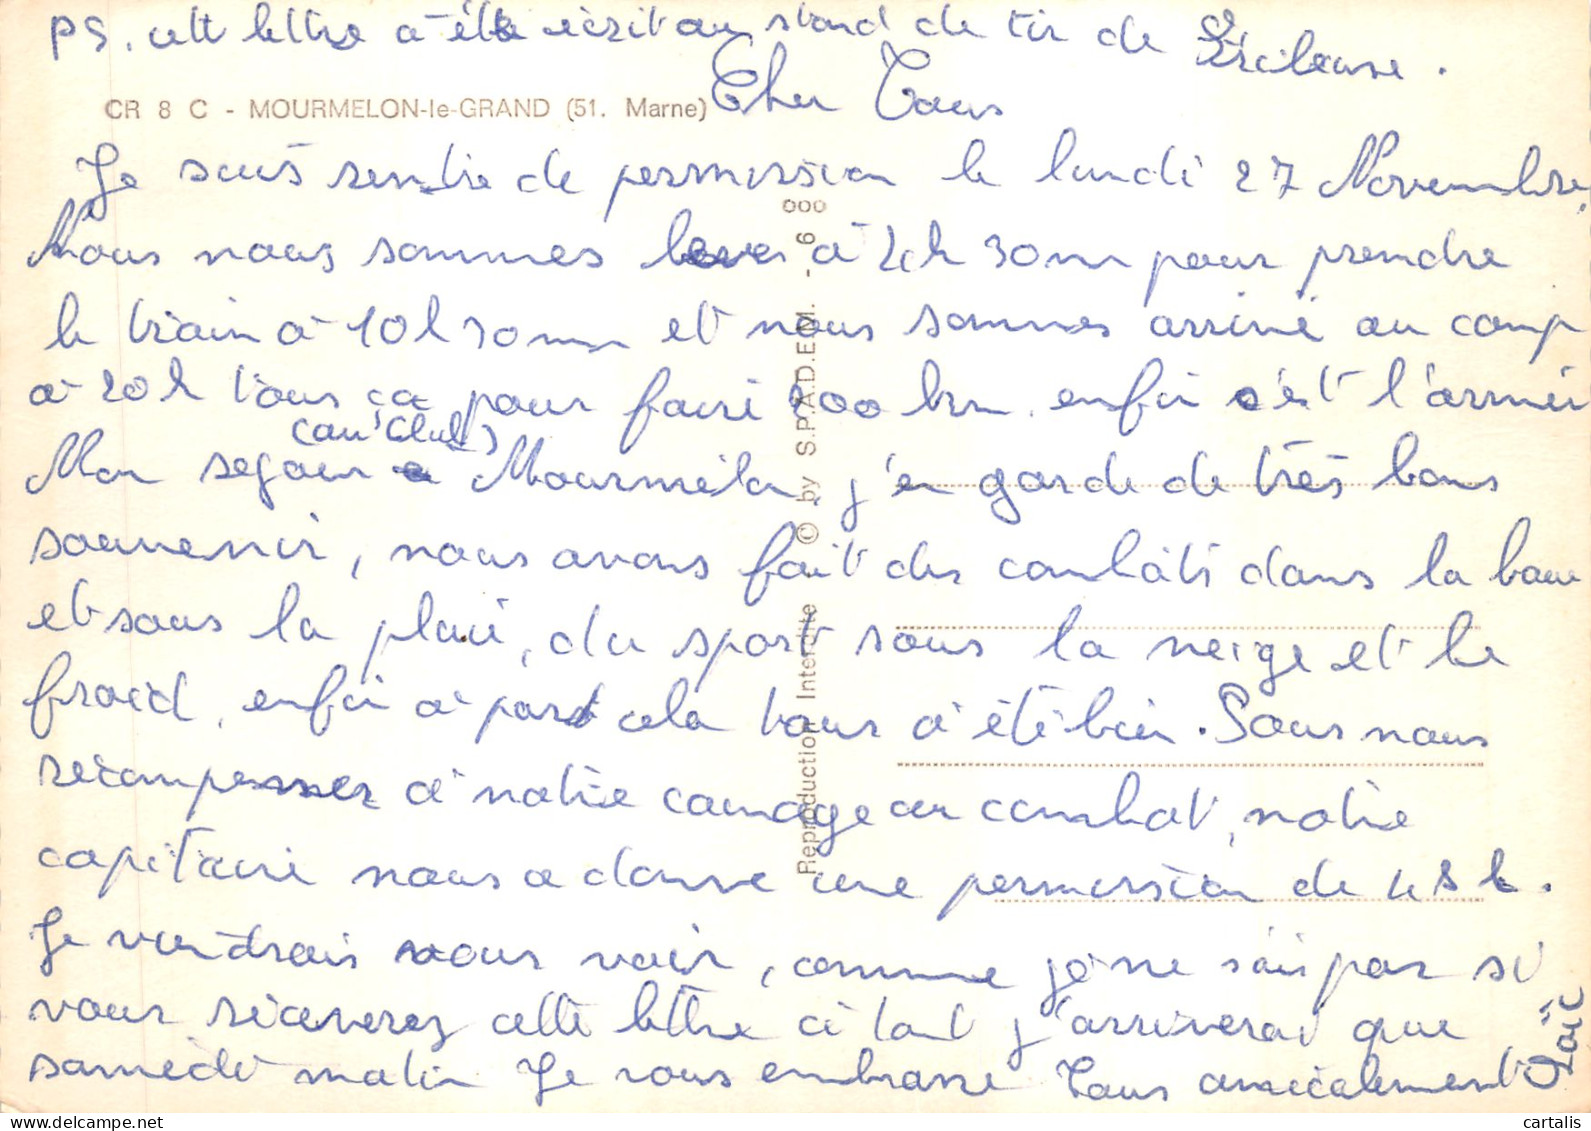 PS. cett lettre a été écrit au stand de tir de
CR 8 C - MOURMELON-le-GRAND (51. Marne)
Cher Tous
Je suis rentré de permission le lundi 27 Novembre,
Nous nous sommes levés à 4h 30m pour prendre
le train à 10h 30m et nous sommes arrivé au camp
à 20h tous ça pour faire 200 km. enfin c'est l'armée
Mon sejour a Mourmelon, j'en garde de très bons
souvenir, nous avons fait des combats dans la boue
et sous la pluie, du sport sous la neige et le
froid, enfin à part cela tous à été bien. Pour nous
récompenser à notre courage au combat, notre
capitaine nous a donne une permission de 48 h.
Je viendrais vous voir, comme je ne sais pas si
vous recevrez cette lettre à tant j'arriverai que
samedi matin Je vous embrasse Tous amicalement
Reproduction Interdite © by S.P.A.D.E.M. - 6 000
cartalis
delcampe.net